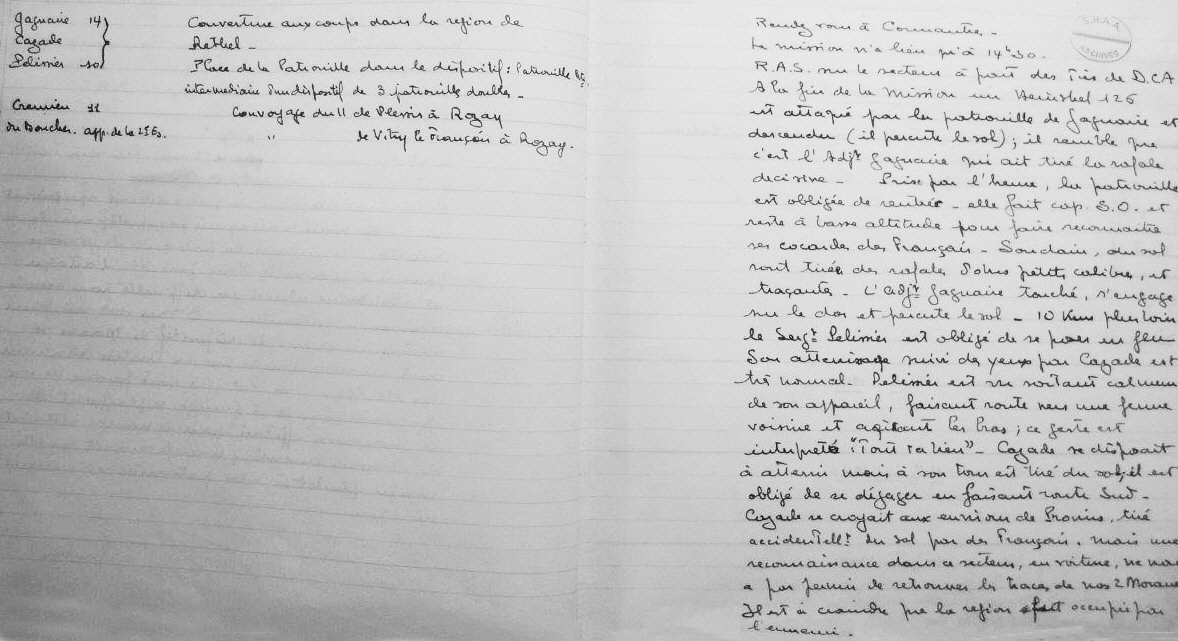 Gagnaire 14
Cazade
Pelimier 10
Couverture aux coups dans la region de
Rethel -
Place de la Patrouille dans le dispositif : Patrouille
intermediaire d'un dispositif de 3 patrouilles doubles -
Cremieu 11
Convoyage du II de Plessis à Rozay
du Boucher. app. de la 2e Es.
" de Vitry le François à Rozay.
Rendez vous à Connantre -
La mission n'a lieu qu'à 14h30.
S.H.A.A
ARCHIVES
R.A.S. sur le secteur à part des Tirs de D.CA
A la fin de la mission un Henschel 126
est attaqué par la patrouille de Gagnaire et
descendu (il percute le sol) ; il semble que
c'est l'Adjt Gagnaire qui ait tiré la rafale
decisive - Prise par l'heure, la patrouille
est obligée de rentrer - elle fait cap. S.O. et
reste à basse altitude pour faire reconnaitre
ses cocardes des Français - Soudain, du sol
sont tirées des rafales d'obus petits calibre, et
traçantes - L'Adjt Gagnaire touché, s'engage
sur le dos et percute le sol - 10 Kms plus loin
le Sergt Pelimier est obligé de se poser en feu
Son atterrissage suivi des yeux par Cazade est
très normal. Pelimier est vu sortant calmem
de son appareil, faisant route vers une ferme
voisine et agitant les bras ; ce geste est
interpreté "Tout va bien" - Cazade se disposait
à atterrir mais à son tour est tiré du sol, il est
obligé de se dégager en faisant route Sud -
Cazade se croyait aux environs de Provins, tiré
accidentellt du sol par des Français. mais une
reconnaissance dans ce secteur, en voiture, ne nous
a pas permis de retrouver les traces de nos 2 Morane
Il est à craindre que la region soit occupée par
l'ennemi.